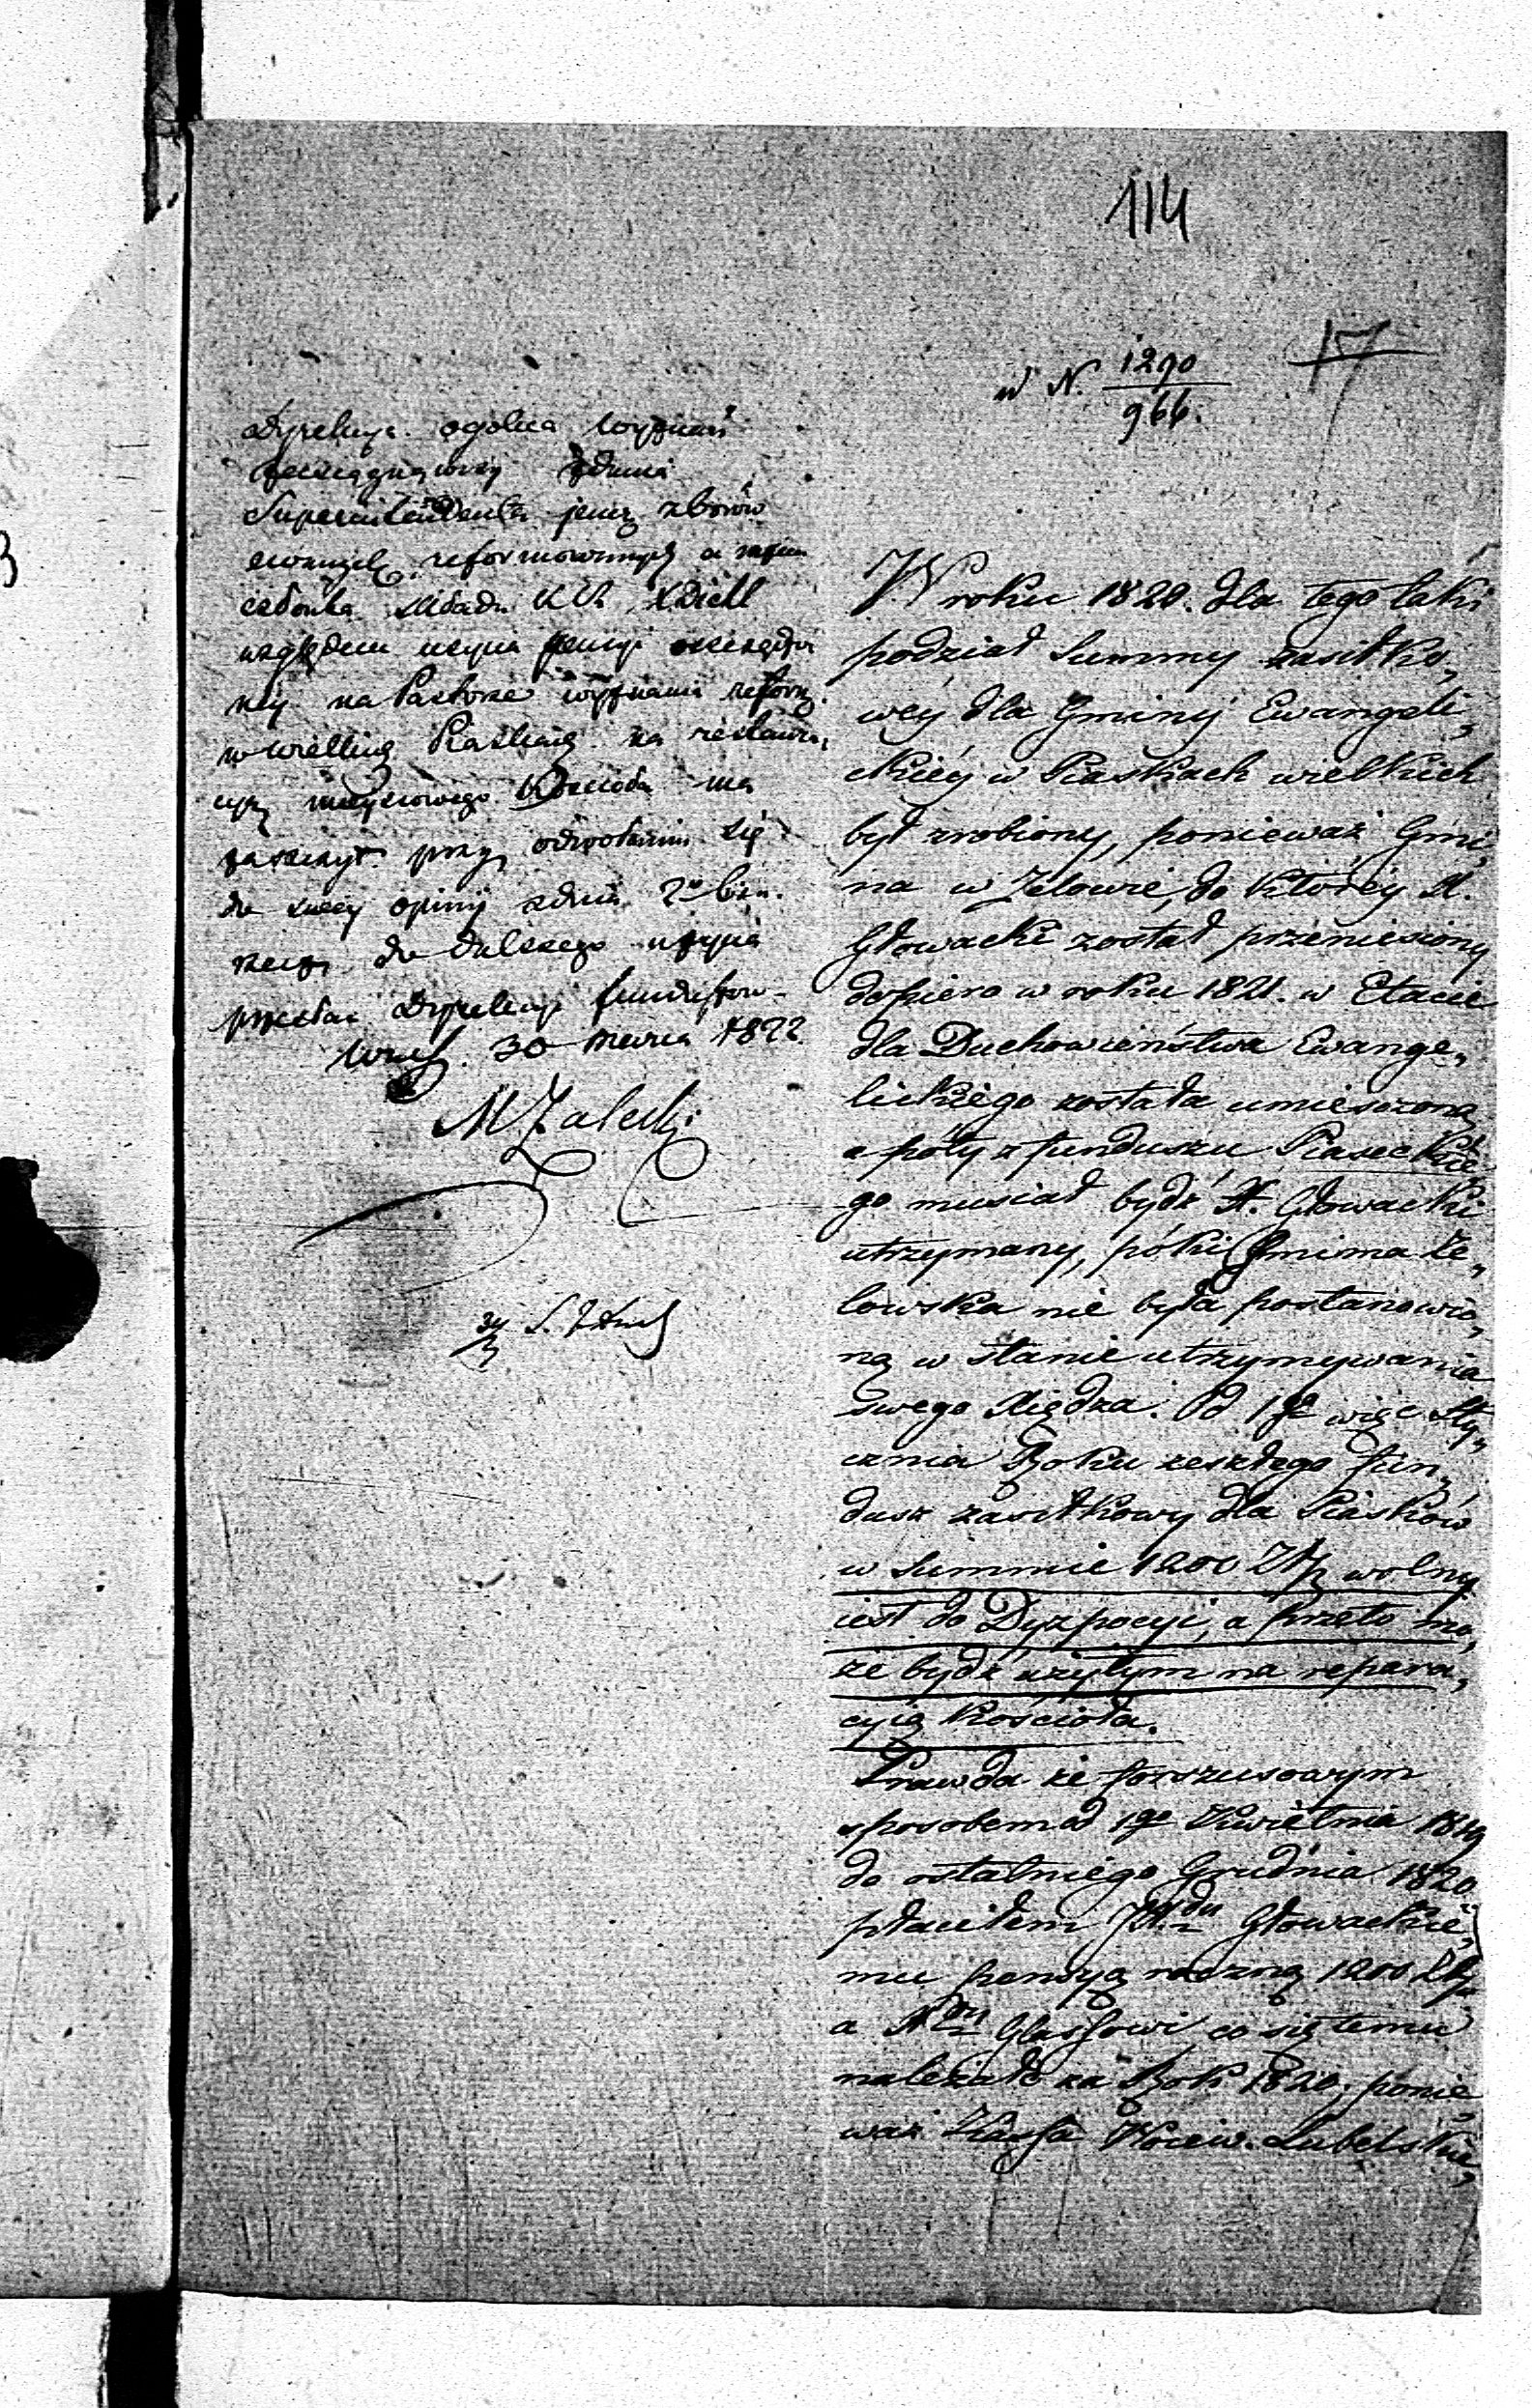 114
17
w N. 1290
966.
Dyrekcya ogólna Wyznań
zaciągnąwszy zdania
Superintendenta jener zborów
ewangel. reformowanych a
członka Składu X Diehl
względem użycia pensyi oszczędzo
néy na Pastorze wyznania reform
w wielkich Piaskach na restaura,
cyą mieyscowego Kościoła ma
zaszczyt przy odwołaniu się
do swey opinij z dnia
do dalszego użycia
przesłać Dyrekcyi funduszow
30 marca 1822
MZaleski
W roku 1820. dla tego taki
podział Summy zasiłko,
wéy dla Gminy Ewangeli,
ckiéy w Piaskach wielkich
był zrobiony, ponieważ Gmi,
na w Zelowie, do któréy X.
Głowacki został przeniesiony
dopiero w roku 1821. w Etacie
dla Duchowieństwa Ewange,
lickiego została umieszczoną
a póty z funduszu Piaseckie,
go musiał bydź X. Głowacki
utrzymany, póki Gmina Ze,
lowska nie była postanowio,
ną w stanie utrzymywania
swego Xiędza. Od 1go więc Sty,
cznia Roku zeszłego fun,
dusz zasiłkowy dla Piasków
w Summie 1200 Złp wolny
iest do Dyzpocyi, a przeto mo,
że bydź użytym na repara,
cyią Kościoła.
Prawda że forszusowym
sposobem od 1go Kwietnia 1819
do ostatniego Grudnia 1820
płaciłem JXdu Głowackie,
mu pensyą roczną 1200 Złp
a Xdu Glassowi co się temu
należało za Rok 1820; ponie,
waż Kassa Woiew. Lubelskie,